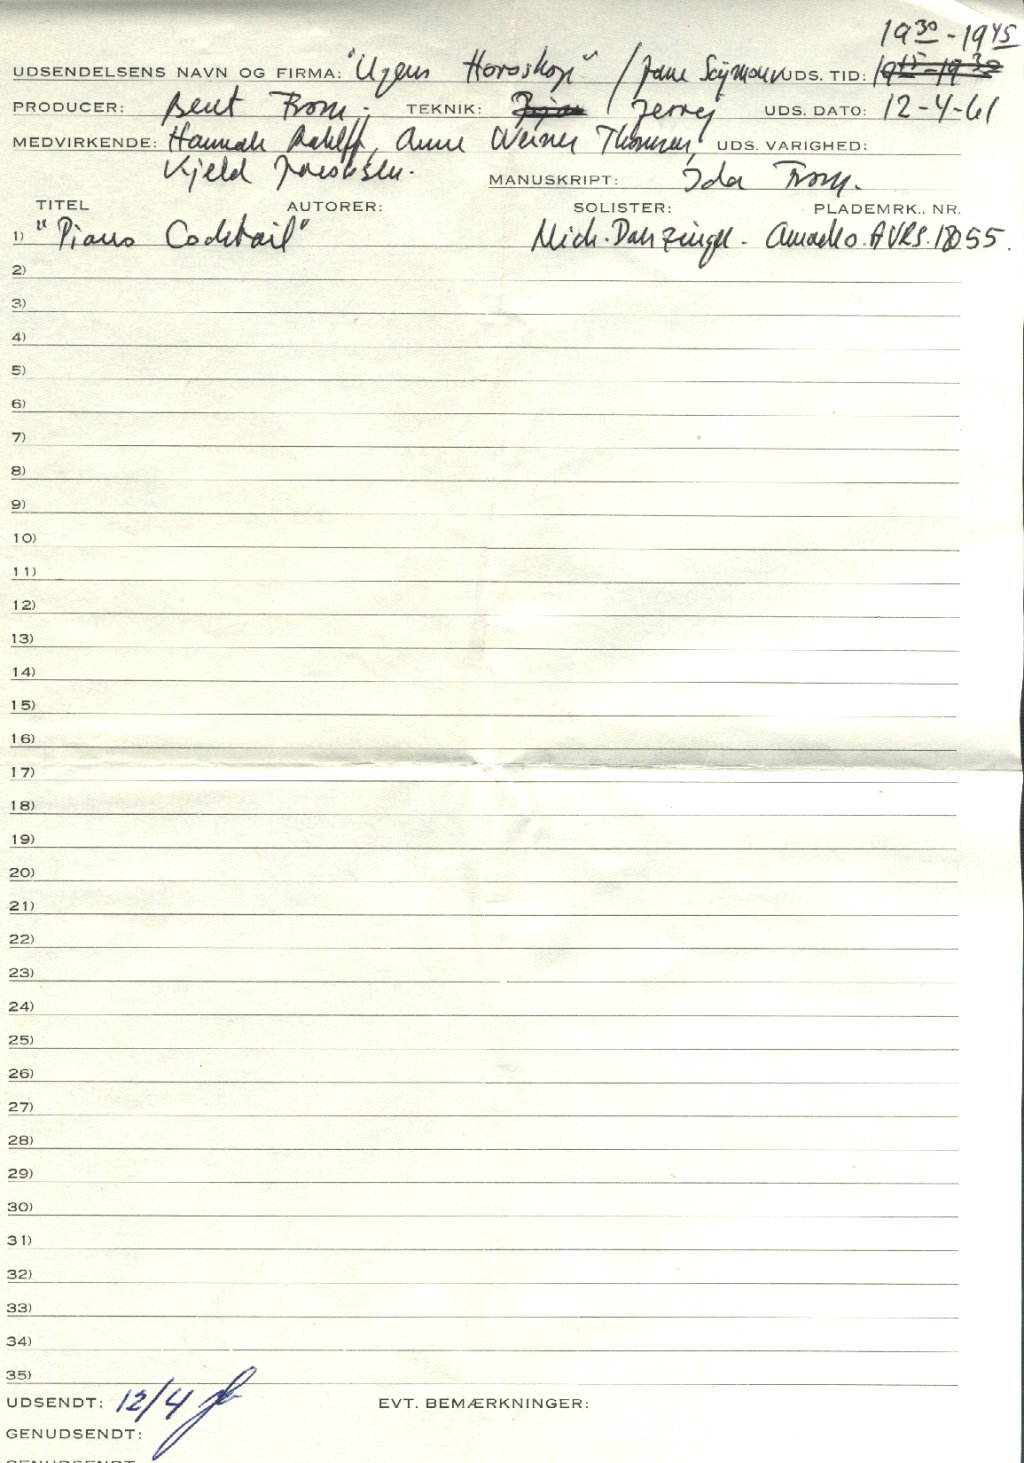 19 30 - 19 45
UDSENDELSENS NAVN OG FIRMA: "Ugens Horoskop" / Jane Seymour UDS. TID: 19 15 - 19 30
PRODUCER: Bent From. TEKNIK: / Jerry UDS. DATO: 12-4-61
MEDVIRKENDE: Hannah Anne Werner Thomsen, UDS. VARIGHED:
Kjeld Jacobsen. MANUSKRIPT: Ida From.
TITEL AUTORER: SOLISTER: PLADEMRK., NR.
1) "Piano Cocktail" Mich. Danzinger - Amadeo. AVRS. 18055.
2)
3)
4)
5)
6)
7)
8)
9)
10)
11)
12)
13)
14)
15)
16)
17)
18)
19)
20)
21)
22)
23)
24)
25)
26)
27)
28)
29)
30)
31)
32)
33)
34)
35)
UDSENDT: 12/4 EVT. BEMÆRKNINGER:
GENUDSENDT:
GENUDSENDT: